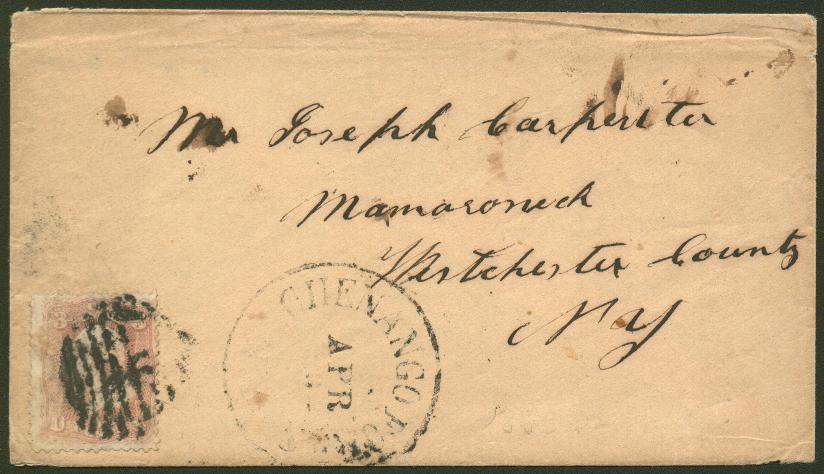 Mr Joseph Carpenter
Mamaroneck
Westchester County
N Y
CHENANGO FOR
APR
3
U